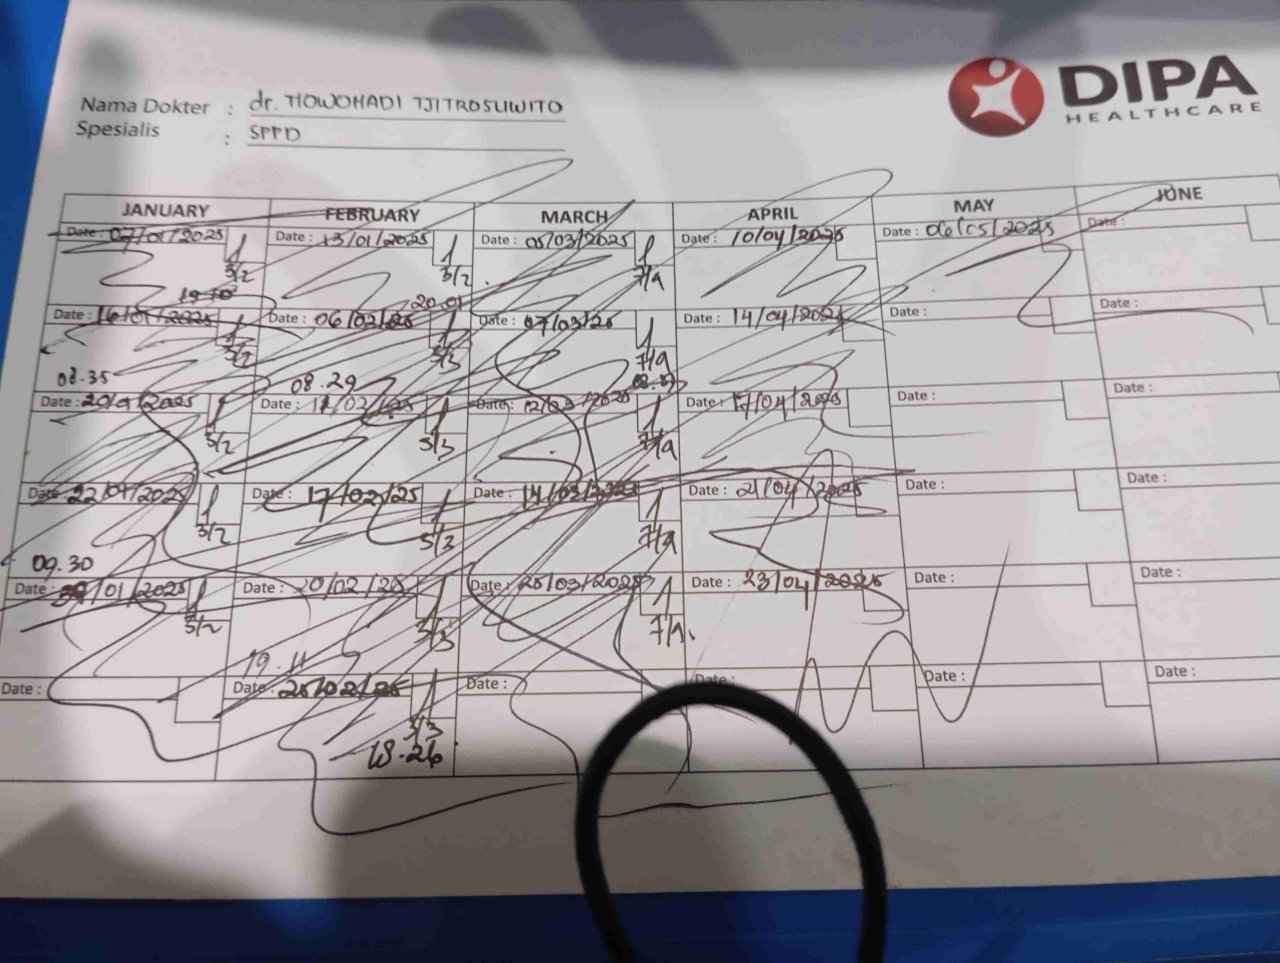 Nama Dokter : dr. TJOWOHADI TJITROSUWITO
Spesialis : SPPD
DIPA
HEALTHCARE
JANUARY FEBRUARY MARCH APRIL MAY JUNE
Date : 07/01/2025 1 3/2 Date : 13/01/2025 1 3/2 Date : 05/03/2025 1 7/9 Date : 10/04/2025 Date : 06/05/2025 Date :
20.01
Date : 16/01/2025 1 3/2 Date : 06/02/25 1 Date : 07/03/25 1 7/9 Date : 14/04/2025 Date : Date :
08.35 08.29
Date : 1 3/2 Date : 1 Date : 12/03/2025 1 7/9 Date : 17/04/2025 Date : Date :
Date : 22/01/2025 1 3/2 Date : 17/02/25 1 Date : 14/03/2025 1 7/9 Date : 21/04/2025 Date : Date :
09.30
Date : /01/2025 1 3/2 Date : 20/02/25 1 Date : 25/03/2025 1 7/9 Date : 23/04/2025 Date : Date :
19.11
Date : Date : 25/02/25 1 3/3 Date : Date : Date : Date :
18.26